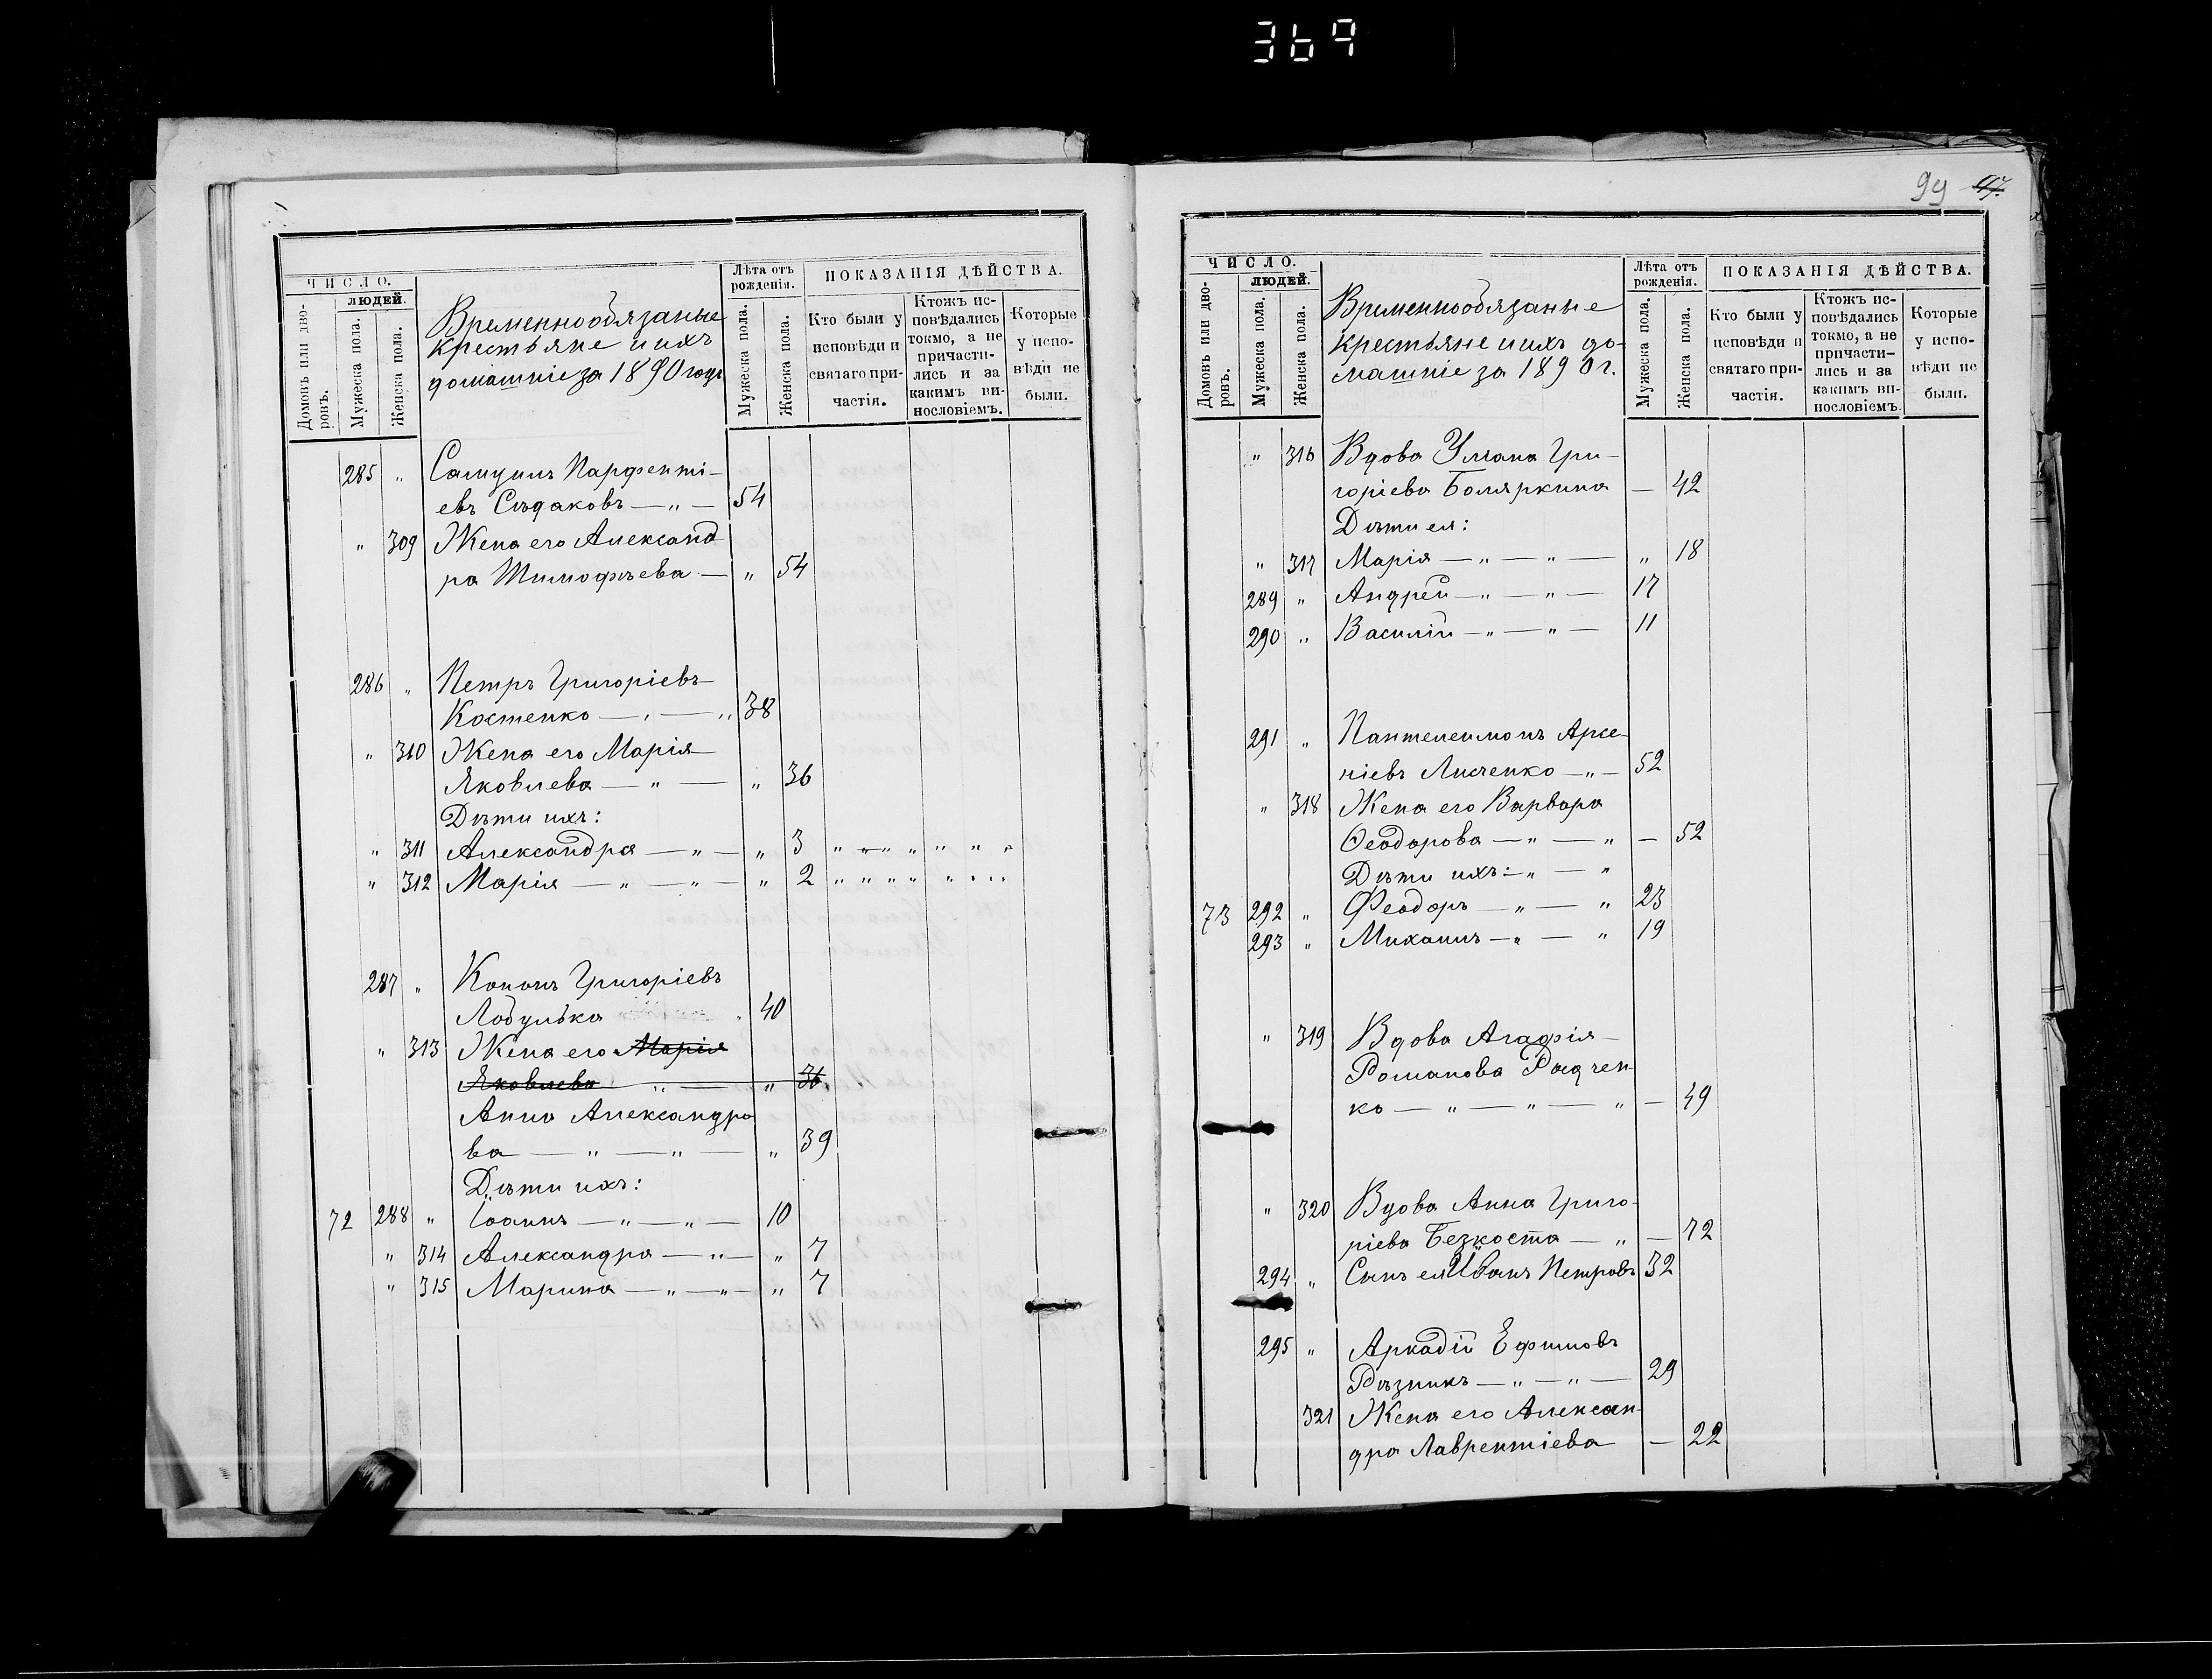 369
ЧИСЛО.
ЛЮДЕЙ.
Домовъ или дворовъ.
Мужеска пола.
Женска пола.
Временнообязаные
крестьяне и ихъ
домашніе за 1890 годъ
Лѣта отъ рожденія.
Мужеска пола.
Женска пола.
ПОКАЗАНІЯ ДѢЙСТВА.
Кто были у исповѣди и святаго причастія.
Ктожъ исповѣдались токмо, а не причастились и за какимъ винословіемъ.
Которые у исповѣди не были.
285 „ Самуилъ Парфенті-
евъ Сѣдаковъ — „ — 54
„ 309 Жена его Александ
ра Тимофѣева — „ 54
286 „ Петръ Григоріевъ
Костенко — „ — „ 38
„ 310 Жена его Марія
Яковлева — „ — „ 36
Дѣти ихъ:
„ 311 Александра — „ — „ 3 „ „ „ „ „ „ „
„ 312 Марія — „ — „ — „ 2 „ „ „ „ „ „ „ „
287 „ Кононъ Григоріевъ
Лобулька 40
„ 313 Жена его Марія
Яковлева „ — „ 36
Анна Александро
ва — „ — „ — „ 39
Дѣти ихъ:
72 288 „ Іоаннъ — „ — „ — 10
„ 314 Александра — „ — „ 7
„ 315 Марина — „ — „ — „ 7
99 97.
ЧИСЛО.
ЛЮДЕЙ.
Домовъ или дворовъ.
Мужеска пола.
Женска пола.
Временнообязаные
крестьяне и ихъ до-
машніе за 1890 г.
Лѣта отъ рожденія.
Мужеска пола.
Женска пола.
ПОКАЗАНІЯ ДѢЙСТВА.
Кто были у исповѣди и святаго причастія.
Ктожъ исповѣдались токмо, а не причастились и за какимъ винословіемъ.
Которые у исповѣди не были.
„ 316 Вдова Уліана Гри-
горіева Боляркина — 42
Дѣти ея:
„ 317 Марія — „ — „ — „ 18
289 „ Андрей — „ — „ — 17
290 „ Василій — „ — „ — 11
291 „ Пантелеимонъ Арсе-
ніевъ Лисченко — „ — 52
„ 318 Жена его Варвара
Ѳеодорова — „ — „ — 52
Дѣти ихъ: — „ — „
73 292 „ Феодоръ — „ — „ 23
293 „ Михаилъ — „ — „ 19
„ 319 Вдова Агафія
Романова Радчен-
ко — „ — „ — „ — 49
„ 320 Вдова Анна Григо-
ріева Безкоста — „ — 72
294 „ Сынъ ея Иванъ Петровъ 32
295 „ Аркадій Ефимовъ
Рѣзникъ — „ — „ — 29
321 Жена его Алексан-
дра Лаврентіева — 22